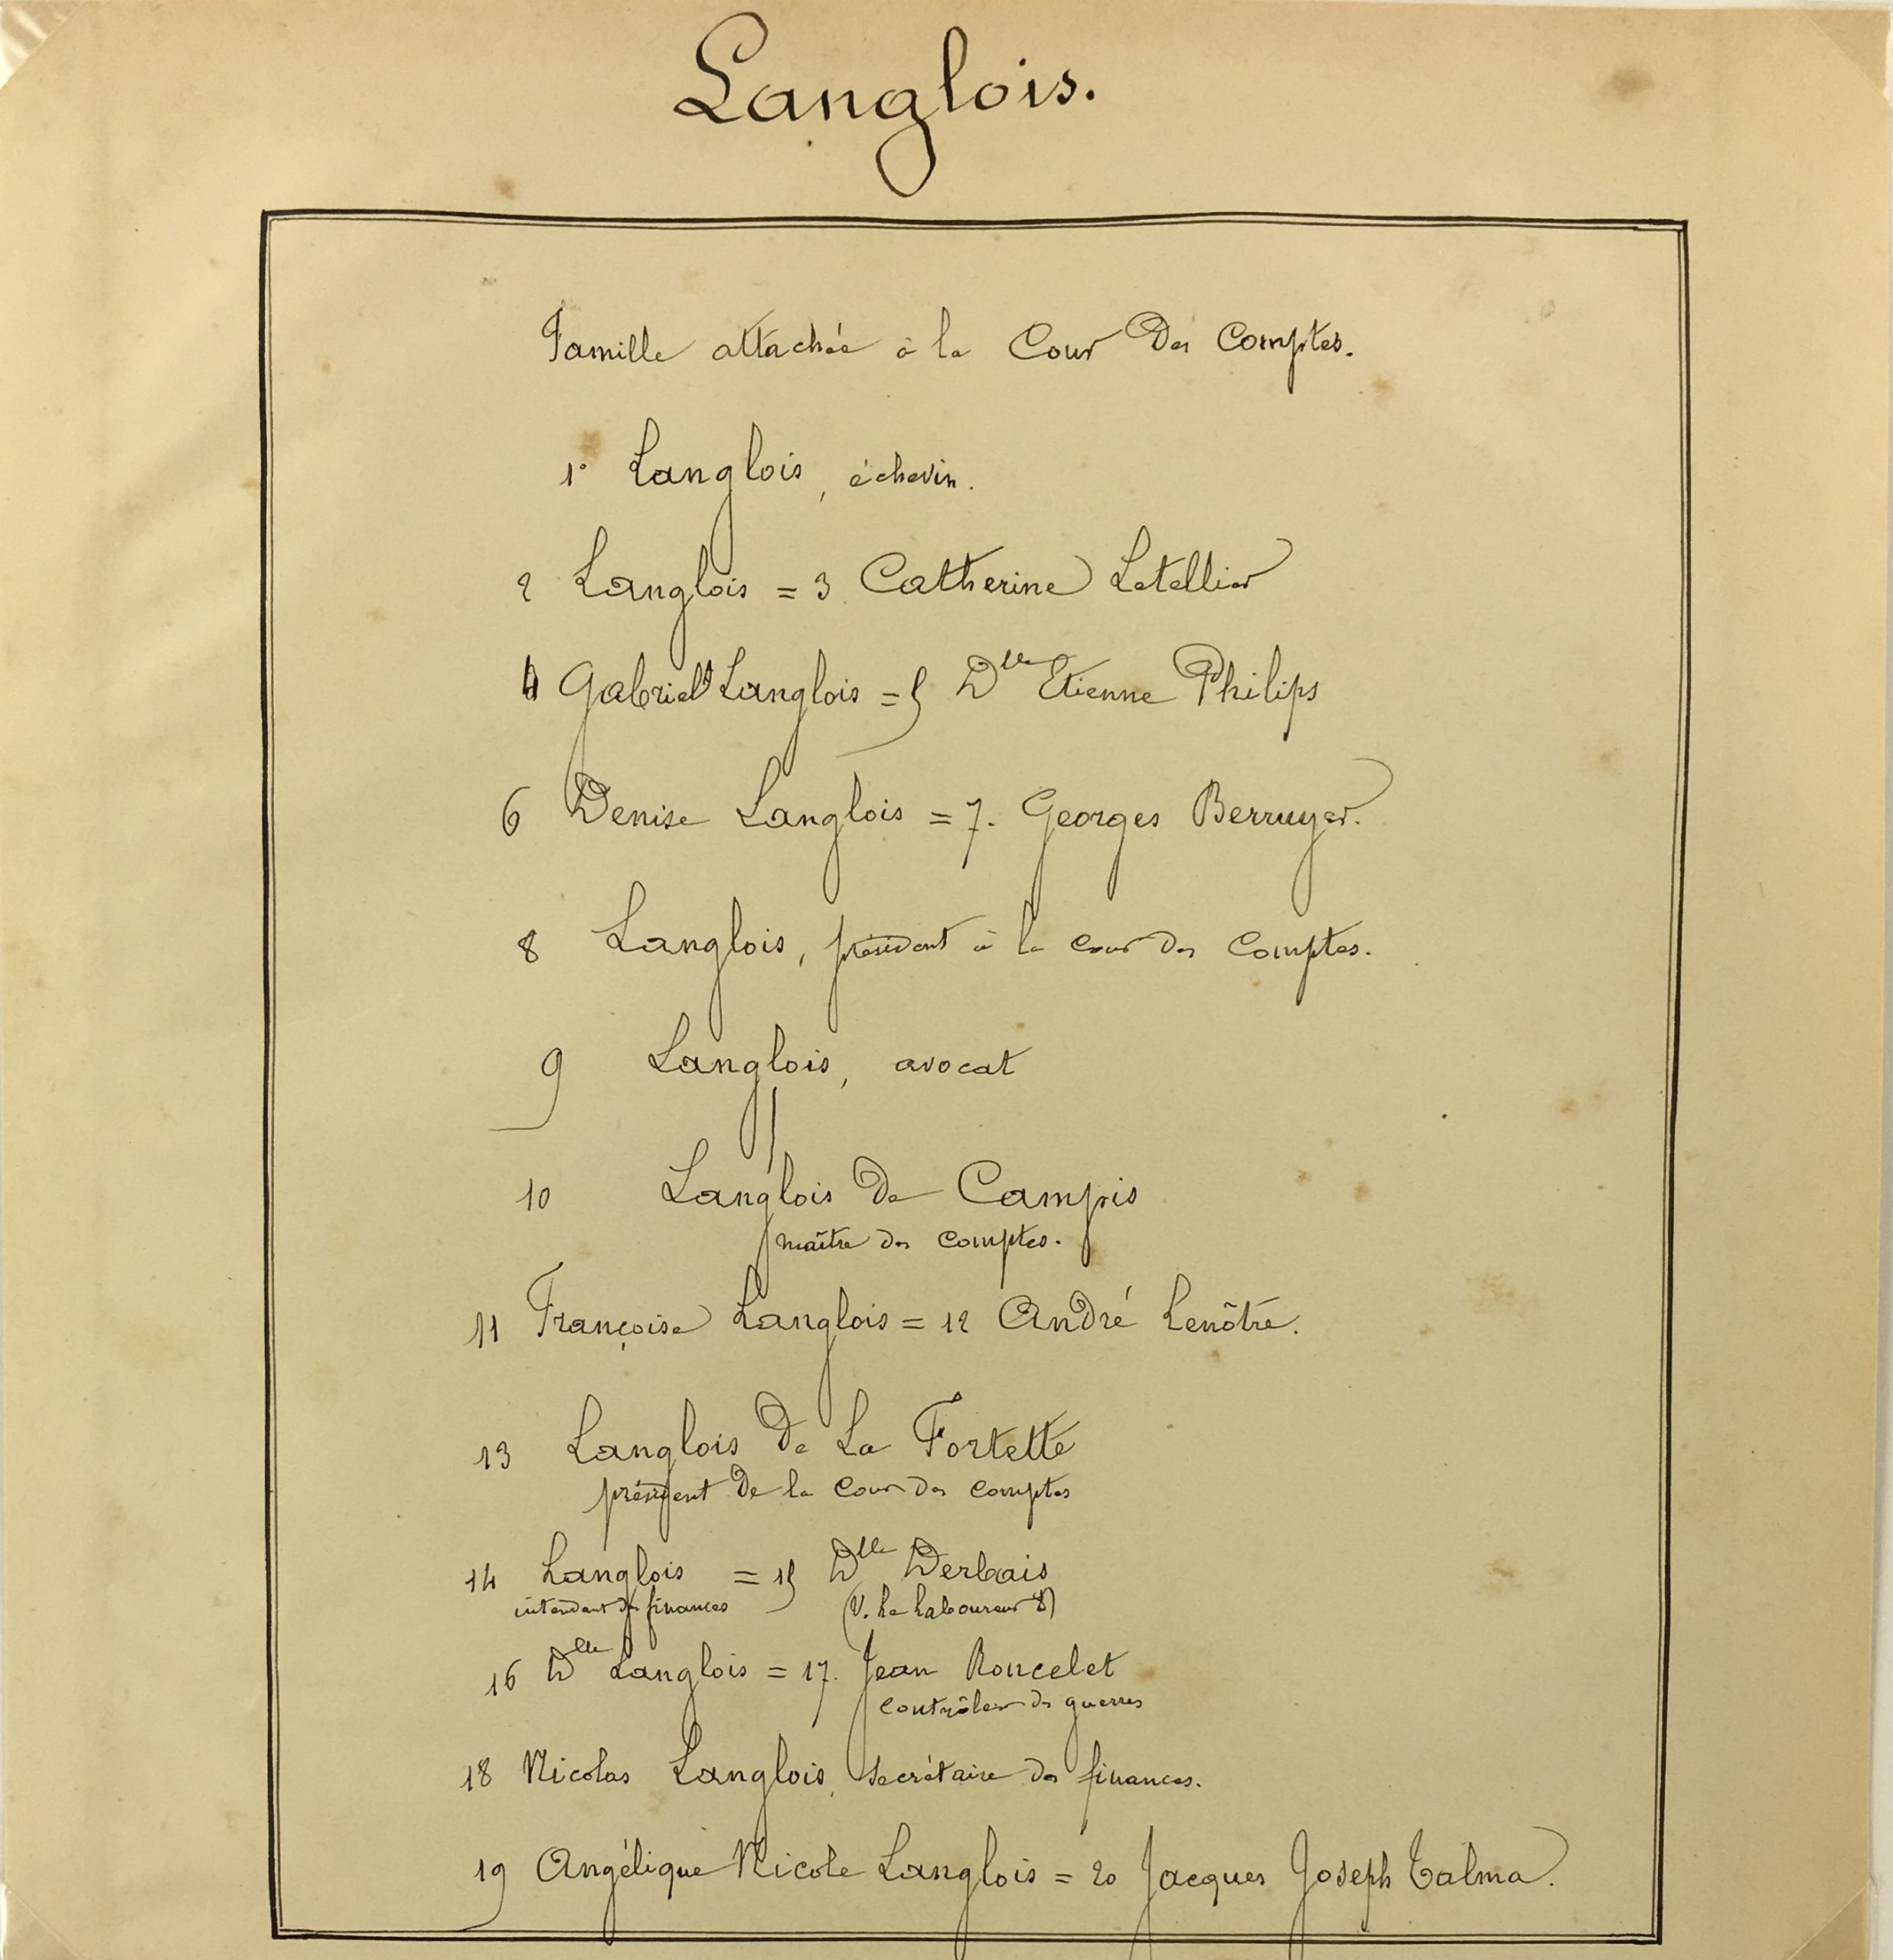 Langlois.
Famille attachée à la Cour des Comptes.
1° Langlois, échevin.
2 Langlois = 3 Catherine Letellier
4 Gabriel Langlois = 5 Dlle Etienne Philips
6 Denise Langlois = 7. Georges Berruyer.
8 Langlois, président à la cour des Comptes.
9 Langlois, avocat
10 Langlois de Campis
maître des comptes.
11 Françoise Langlois = 12 André Lenôtre.
13 Langlois de La Fortette
président de la Cour des comptes
14 Langlois = 15 Dlle Derbais
intendant des finances (V. Le Laboureur 8)
16 Dlle Langlois = 17. Jean Roncelet
contrôleur des guerres
18 Nicolas Langlois, secrétaire des finances.
19 Angélique Nicole Langlois = 20 Jacques Joseph Talma.